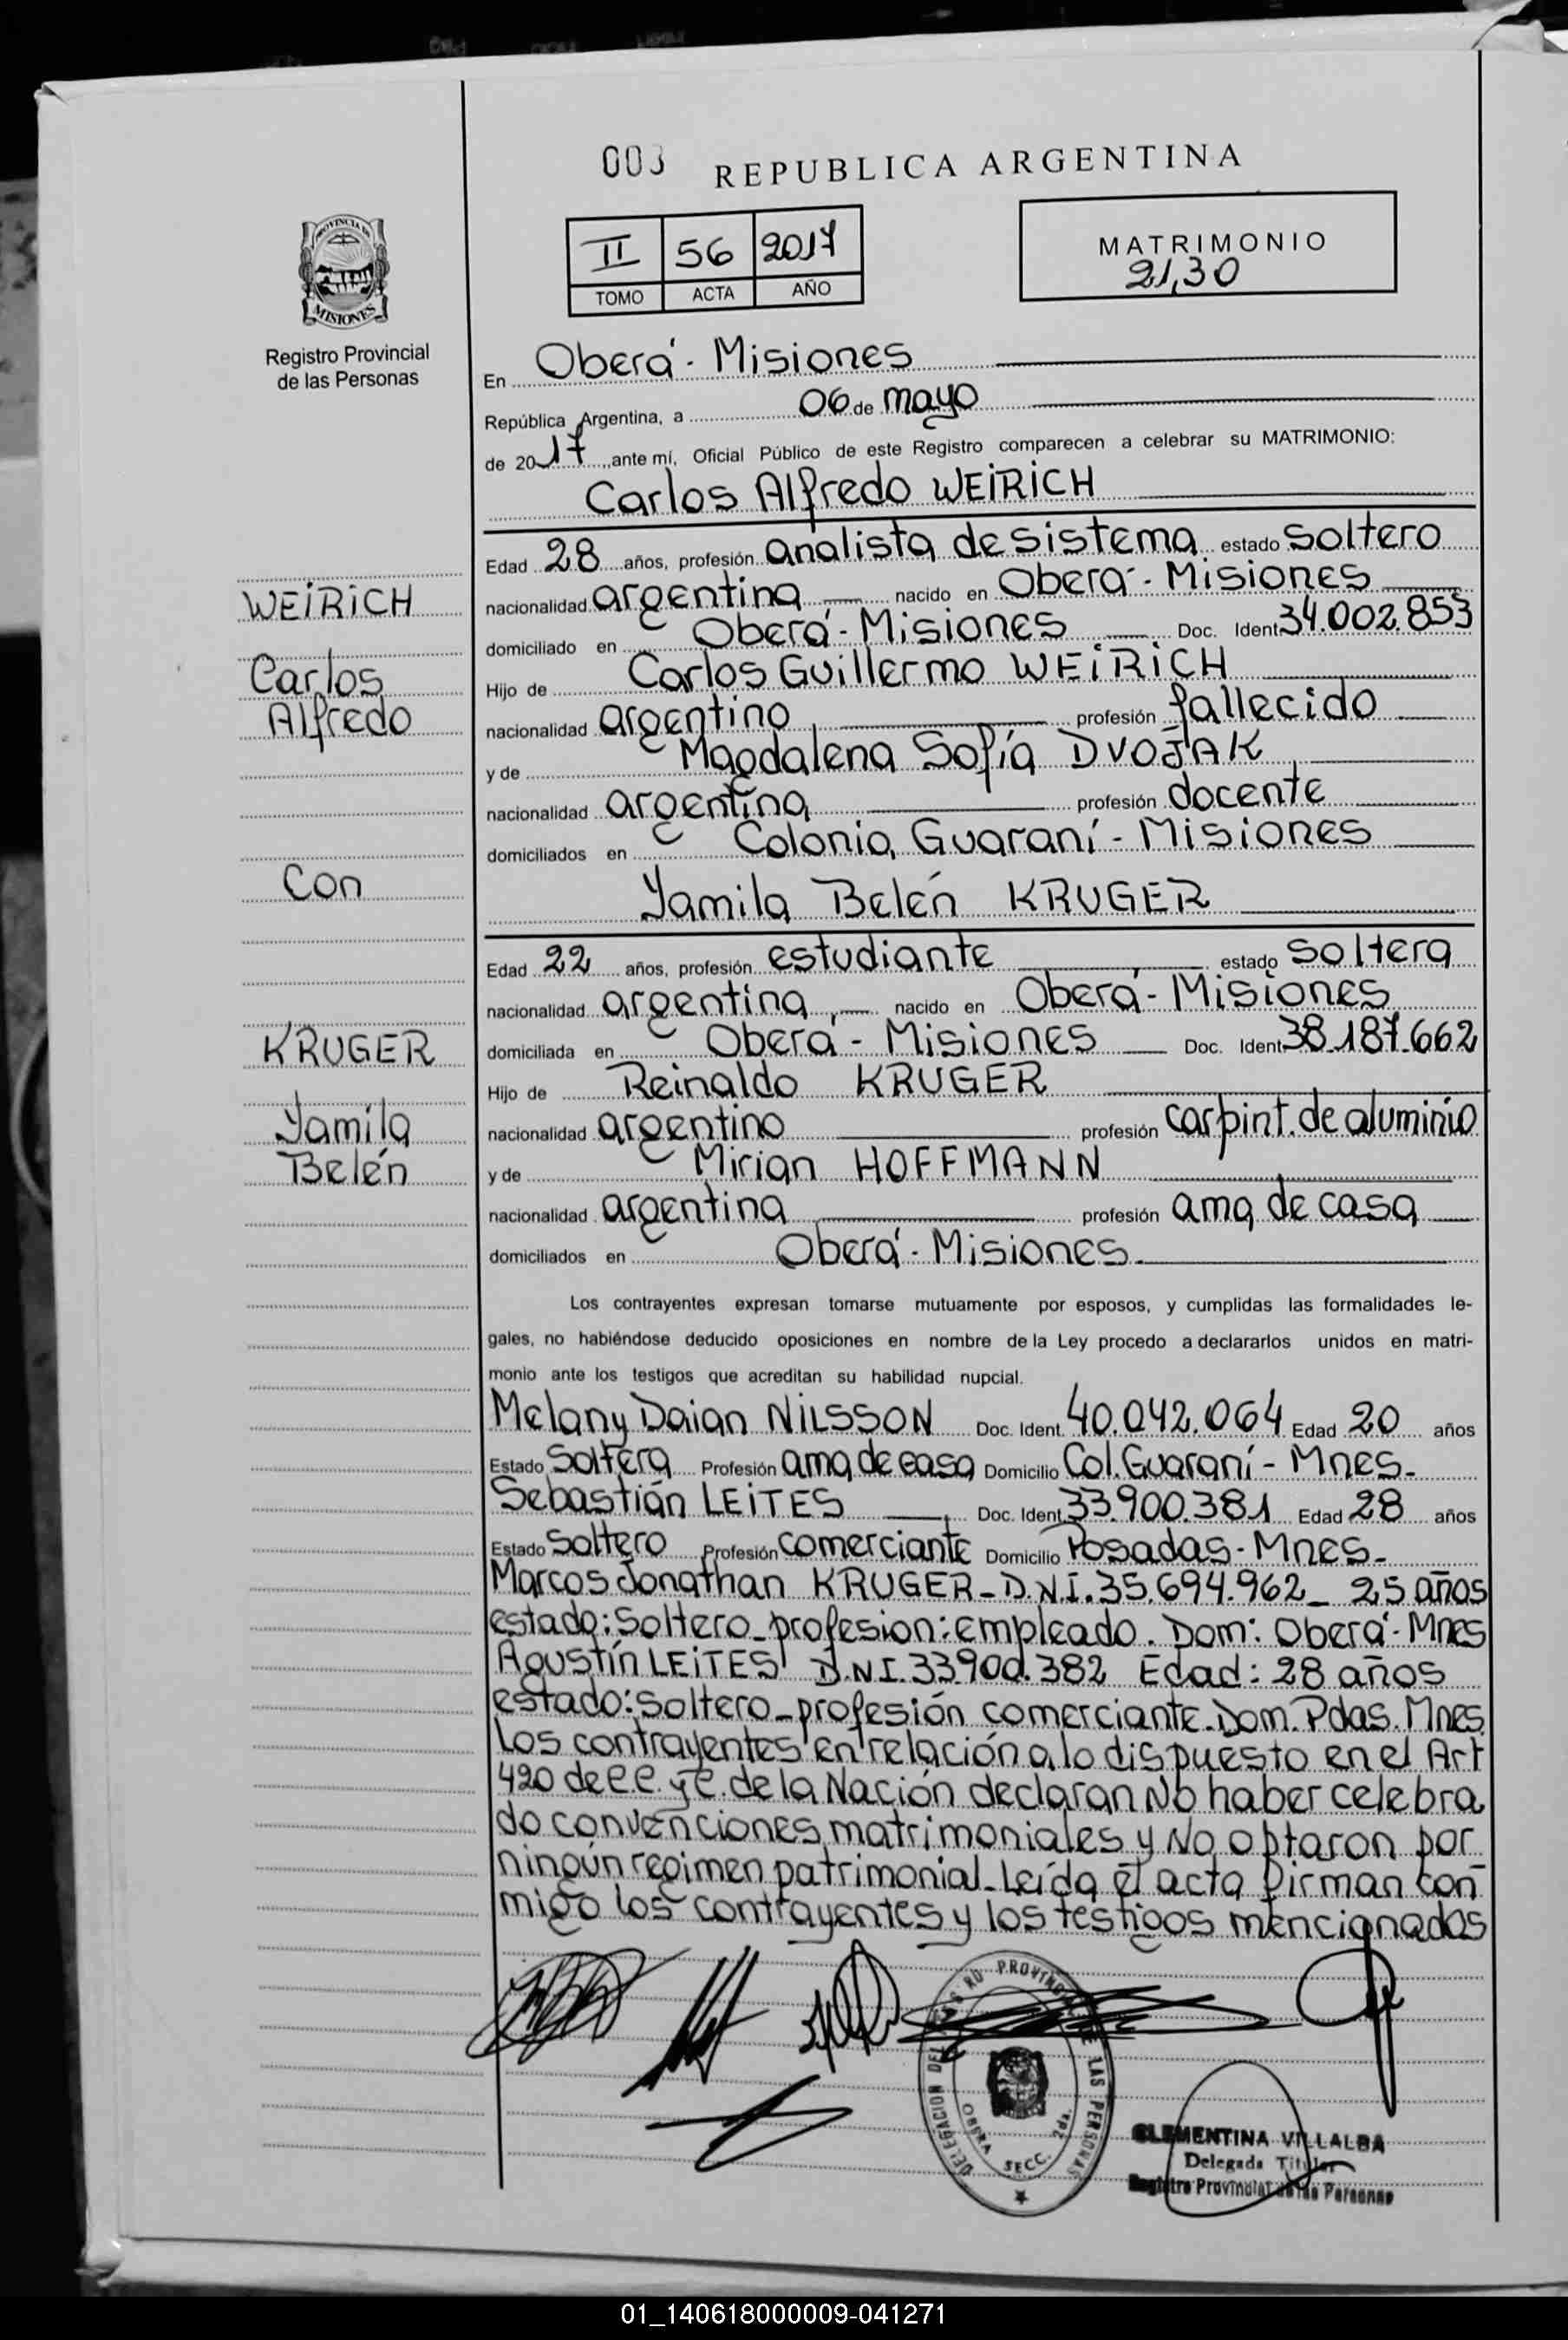 003 REPUBLICA ARGENTINA
PROVINCIA DE
MISIONES
Registro Provincial
de las Personas
II 56 2017
TOMO ACTA AÑO
MATRIMONIO
21,30
En Oberá - Misiones
República Argentina, a 06 de mayo
de 2017, ante mí, Oficial Público de este Registro comparecen a celebrar su MATRIMONIO:
Carlos Alfredo WEIRICH
Edad 28 años, profesión analista de sistema estado soltero
nacionalidad argentina nacido en Oberá - Misiones
domiciliado en Oberá - Misiones Doc. Ident 34.002.853
Hijo de Carlos Guillermo WEIRICH
nacionalidad argentino profesión fallecido
y de Magdalena Sofía DVOJAK
nacionalidad argentina profesión docente
domiciliados en Colonia Guaraní - Misiones
Yamila Belén KRUGER
Edad 22 años, profesión estudiante estado soltera
nacionalidad argentina nacido en Oberá - Misiones
domiciliada en Oberá - Misiones Doc. Ident 38.187.662
Hijo de Reinaldo KRUGER
nacionalidad argentino profesión carpint. de aluminio
y de Mirian HOFFMANN
nacionalidad argentina profesión ama de casa
domiciliados en Oberá - Misiones
WEIRICH
Carlos
Alfredo
Con
KRUGER
Yamila
Belén
Los contrayentes expresan tomarse mutuamente por esposos, y cumplidas las formalidades le-
gales, no habiéndose deducido oposiciones en nombre de la Ley procedo a declararlos unidos en matri-
monio ante los testigos que acreditan su habilidad nupcial.
Melany Daian NILSSON Doc. Ident. 40.042.064 Edad 20 años
Estado soltera Profesión ama de casa Domicilio Col. Guaraní - Mnes.
Sebastián LEITES Doc. Ident 33.900.381 Edad 28 años
Estado soltero Profesión comerciante Domicilio Posadas - Mnes.
Marcos Jonathan KRUGER - D.N.I. 35.694.962 - 25 años
estado: soltero - profesion: empleado. Dom: Oberá - Mnes
Agustín LEITES D.N.I. 33.900.382 Edad: 28 años
estado: soltero - profesión comerciante. Dom. Pdas. Mnes.
Los contrayentes en relación a lo dispuesto en el Art
420 de C.C. y C. de la Nación declaran No haber celebra
do convenciones matrimoniales y No optaron por
ningún regimen patrimonial. Leída el acta firman con
migo los contrayentes y los testigos mencionados
DELEGACION DEL REGISTRO PROVINCIAL DE LAS PERSONAS
OBERA SECC. 2da.
CLEMENTINA VILLALBA
Delegada Titular
Registro Provincial de las Personas
01_140618000009-041271